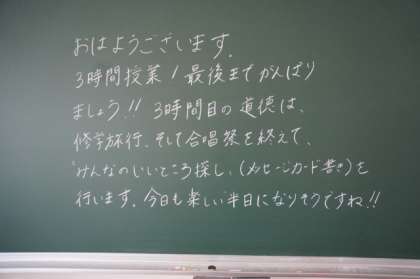 おはようございます。
3時間授業！最後までがんばり
ましょう!! 3時間目の道徳は、
修学旅行、そして合唱祭を終えて、
"みんなのいいところ探し"(メッセージカード書き)を
行います。今日も楽しい半日になりそうですね!!